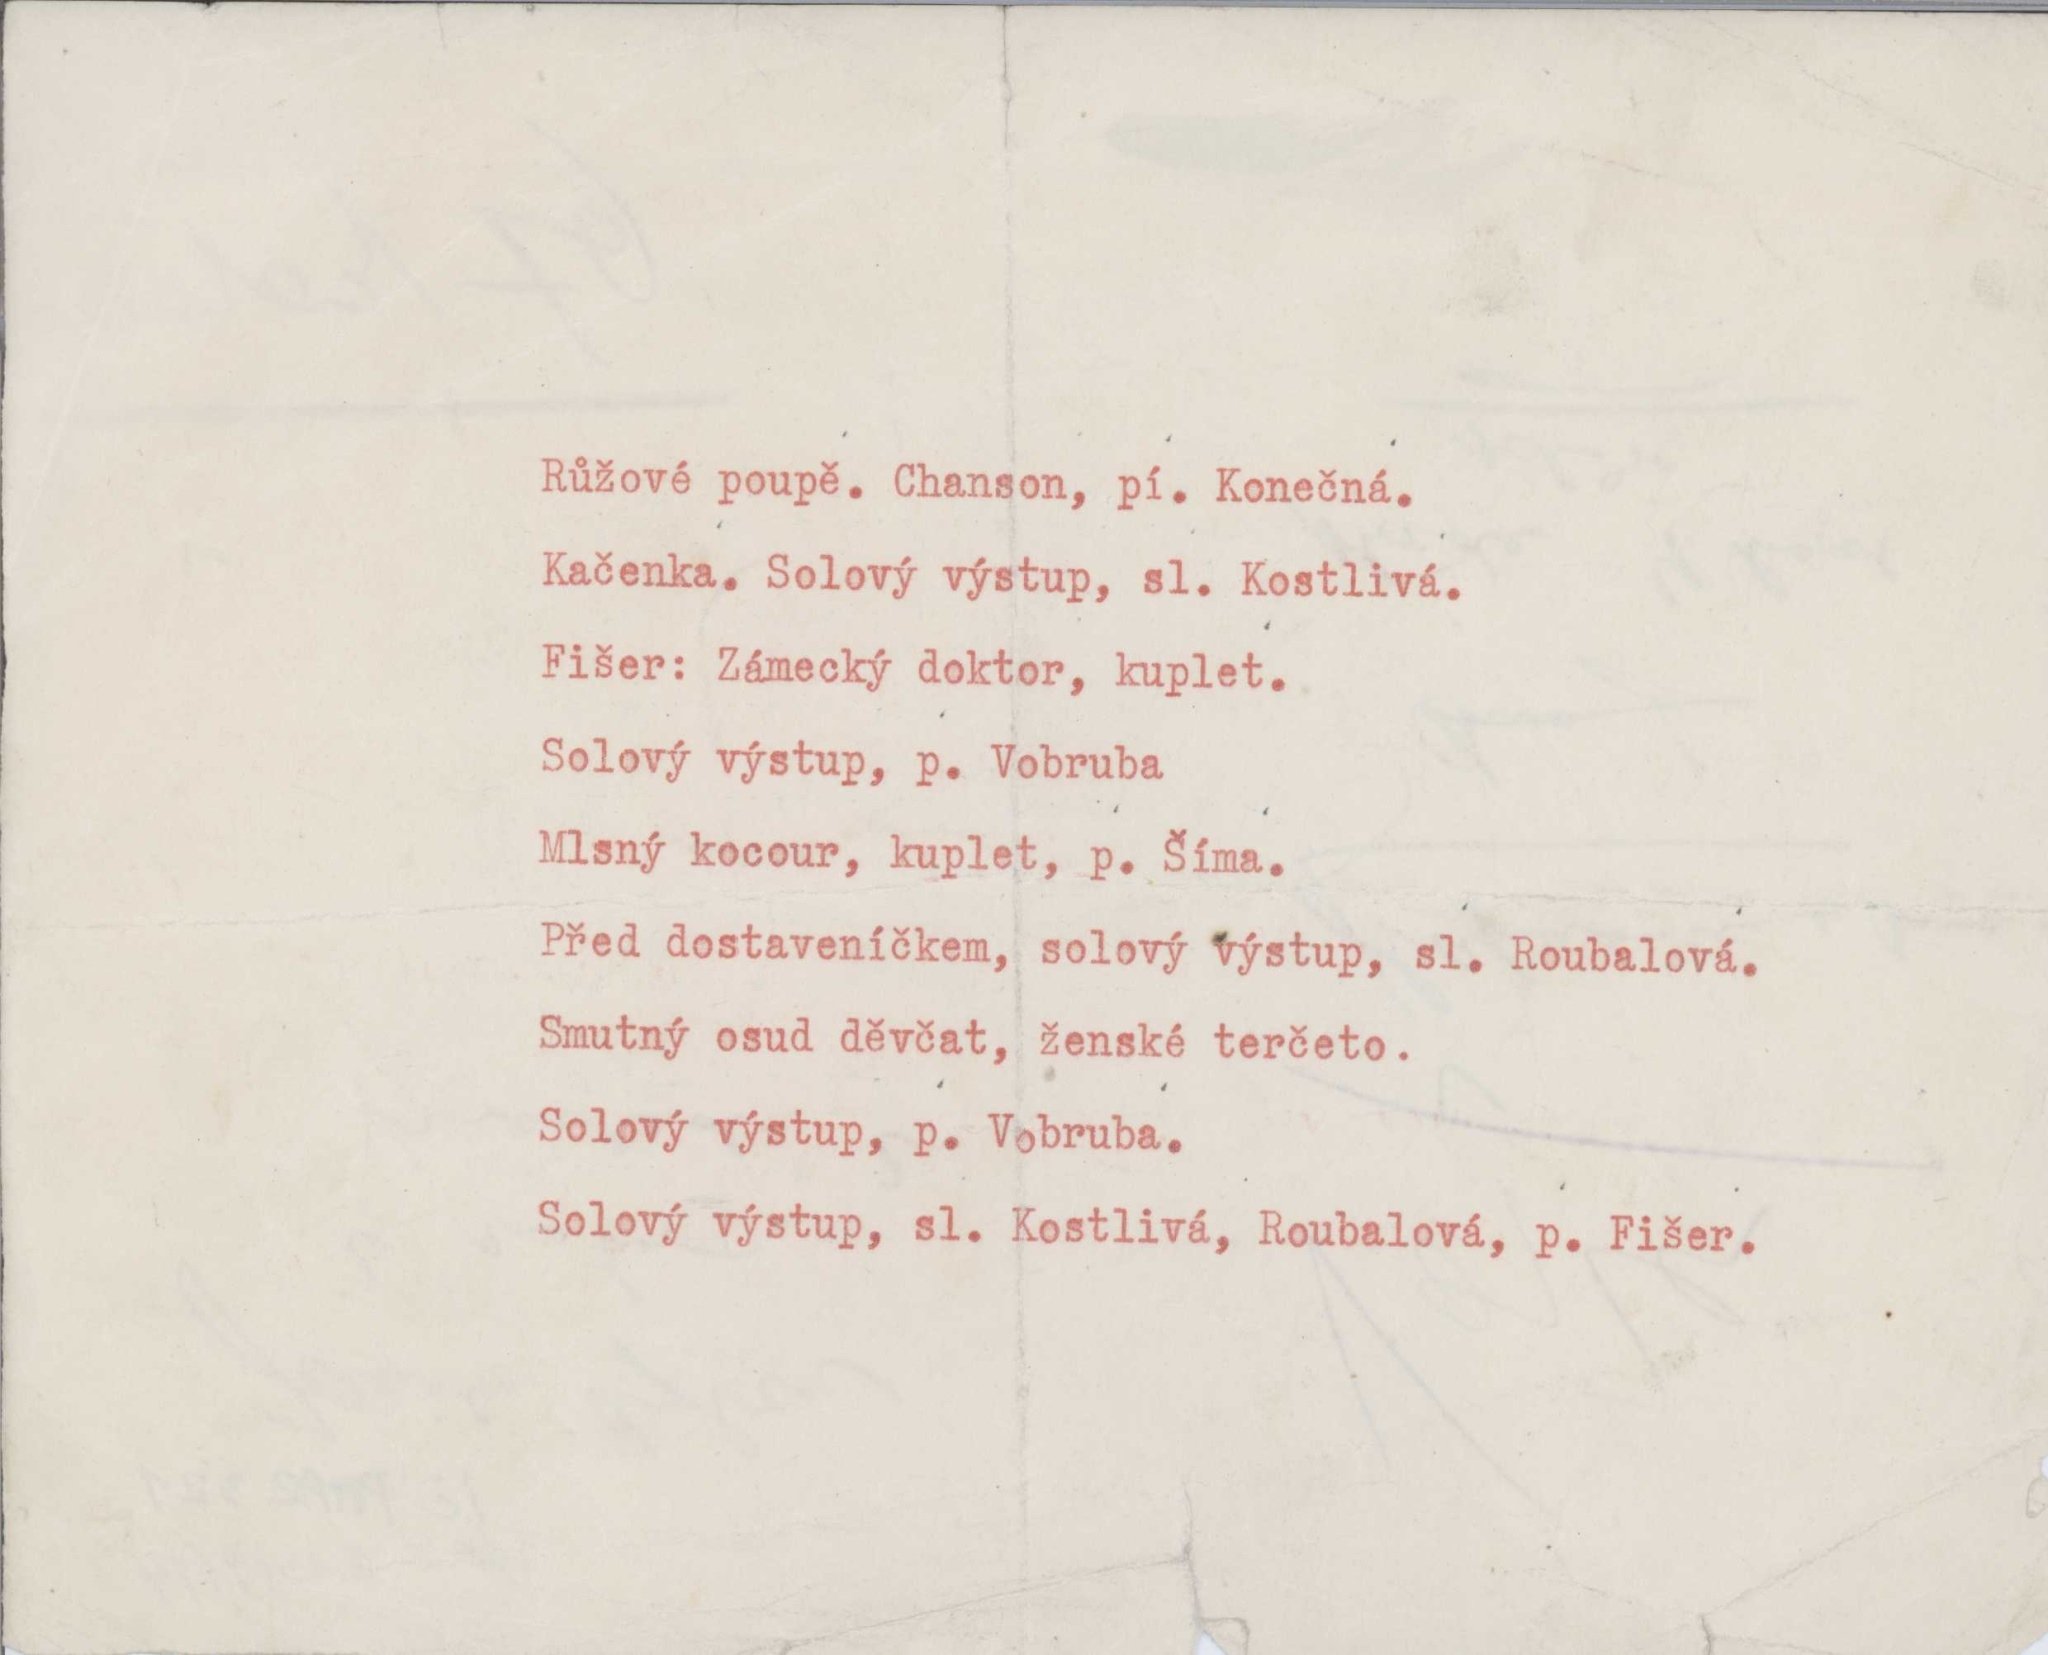 Růžové poupě. Chanson, pí. Konečná.
Kačenka. Solový výstup, sl. Kostlivá.
Fišer: Zámecký doktor, kuplet.
Solový výstup, p. Vobruba
Mlsný kocour, kuplet, p. Šíma.
Před dostaveníčkem, solový výstup, sl. Roubalová.
Smutný osud děvčat, ženské terčeto.
Solový výstup, p. Vobruba.
Solový výstup, sl. Kostlivá, Roubalová, p. Fišer.